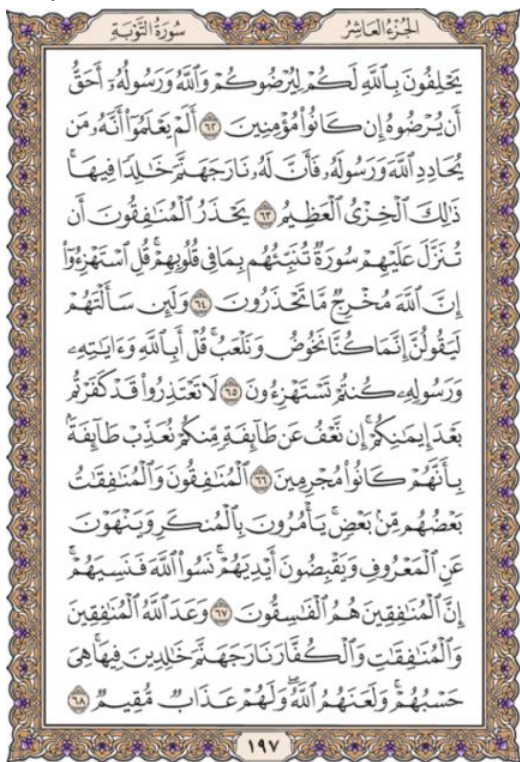 الجُزءُ العَاشِرُ سُورَةُ التَّوْبَةِ
يَحْلِفُونَ بِٱللَّهِ لَكُمْ لِيُرْضُوكُمْ وَٱللَّهُ وَرَسُولُهُۥٓ أَحَقُّ
أَن يُرْضُوهُ إِن كَانُوا۟ مُؤْمِنِينَ ٦٢ أَلَمْ يَعْلَمُوٓا۟ أَنَّهُۥ مَن
يُحَادِدِ ٱللَّهَ وَرَسُولَهُۥ فَأَنَّ لَهُۥ نَارَ جَهَنَّمَ خَـٰلِدًا فِيهَا ۚ
ذَٰلِكَ ٱلْخِزْىُ ٱلْعَظِيمُ ٦٣ يَحْذَرُ ٱلْمُنَـٰفِقُونَ أَن
تُنَزَّلَ عَلَيْهِمْ سُورَةٌ تُنَبِّئُهُم بِمَا فِى قُلُوبِهِمْ ۚ قُلِ ٱسْتَهْزِءُوٓا۟
إِنَّ ٱللَّهَ مُخْرِجٌ مَّا تَحْذَرُونَ ٦٤ وَلَئِن سَأَلْتَهُمْ
لَيَقُولُنَّ إِنَّمَا كُنَّا نَخُوضُ وَنَلْعَبُ ۚ قُلْ أَبِٱللَّهِ وَءَايَـٰتِهِۦ
وَرَسُولِهِۦ كُنتُمْ تَسْتَهْزِءُونَ ٦٥ لَا تَعْتَذِرُوا۟ قَدْ كَفَرْتُم
بَعْدَ إِيمَـٰنِكُمْ ۚ إِن نَّعْفُ عَن طَآئِفَةٍ مِّنكُمْ نُعَذِّبْ طَآئِفَةًۢ
بِأَنَّهُمْ كَانُوا۟ مُجْرِمِينَ ٦٦ ٱلْمُنَـٰفِقُونَ وَٱلْمُنَـٰفِقَـٰتُ
بَعْضُهُم مِّنۢ بَعْضٍ ۚ يَأْمُرُونَ بِٱلْمُنكَرِ وَيَنْهَوْنَ
عَنِ ٱلْمَعْرُوفِ وَيَقْبِضُونَ أَيْدِيَهُمْ ۚ نَسُوا۟ ٱللَّهَ فَنَسِيَهُمْ ۗ
إِنَّ ٱلْمُنَـٰفِقِينَ هُمُ ٱلْفَـٰسِقُونَ ٦٧ وَعَدَ ٱللَّهُ ٱلْمُنَـٰفِقِينَ
وَٱلْمُنَـٰفِقَـٰتِ وَٱلْكُفَّارَ نَارَ جَهَنَّمَ خَـٰلِدِينَ فِيهَا ۚ هِىَ
حَسْبُهُمْ ۚ وَلَعَنَهُمُ ٱللَّهُ ۖ وَلَهُمْ عَذَابٌ مُّقِيمٌ ٦٨
١٩٧